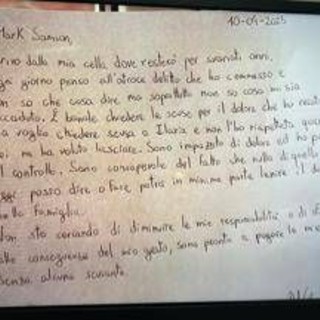 10-04-2025
Mark Samson,
dalla mia cella dove resterò per svariati anni.
giorno penso all'atroce delitto che ho commesso e
so che cosa dire ma sopratutto non so cosa mi sia
accaduto. È banale chiedere le scuse per il dolore che ho
voglio chiedere scusa a Ilaria e non l'ho rispettata
ha voluto lasciare. Sono impazzito di dolore ed ho
il controllo. Sono consapevole del fatto che nulla di quello
oggi posso dire o fare potrà in minima parte lenire il
famiglia.
Non sto cercando di diminuire le mie responsabilità o di
alle conseguenze del mio gesto, sono pronto a pagare la
senza alcuno sconto.